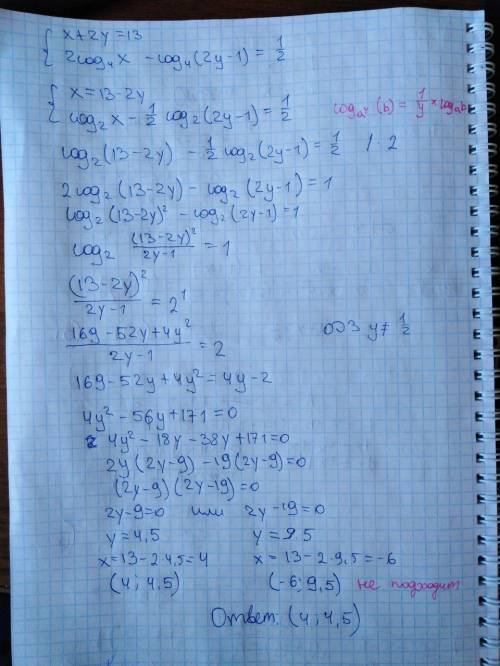 x+2y=13
2log₄x - log₄(2y-1) = 1/2
x=13-2y
log₂x - 1/2 log₂(2y-1) = 1/2
log_aʸ(b) = 1/y * log_a b
log₂(13-2y) - 1/2 log₂(2y-1) = 1/2 / · 2
2log₂(13-2y) - log₂(2y-1) = 1
log₂(13-2y)² - log₂(2y-1) = 1
log₂ (13-2y)²/(2y-1) = 1
(13-2y)²/(2y-1) = 2¹
(169-52y+4y²)/(2y-1) = 2
ОДЗ y≠ 1/2
169-52y+4y²=4y-2
4y²-56y+171=0
4y²-18y-38y+171=0
2y(2y-9)-19(2y-9)=0
(2y-9)(2y-19)=0
2y-9=0 или 2y-19=0
y=4,5 y=9.5
x=13-2·4,5=4 x=13-2·9,5=-6
(4; 4,5) (-6; 9,5) не подходит
Ответ: (4; 4,5)